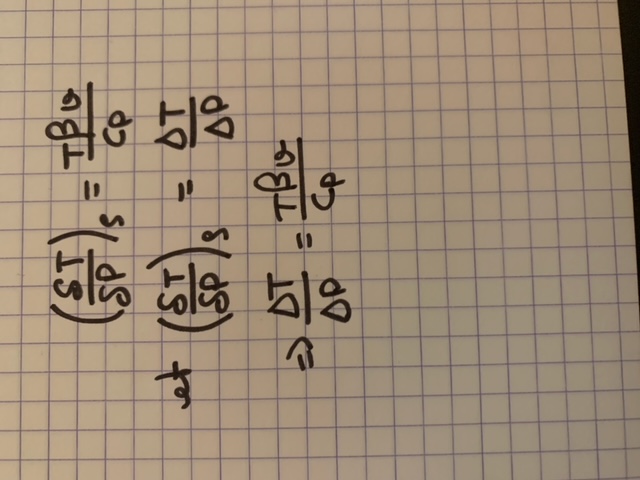 (δT/δP)s = Tβv/Cp
et (δT/δP)s = ΔT/ΔP
=> ΔT/ΔP = Tβv/Cp